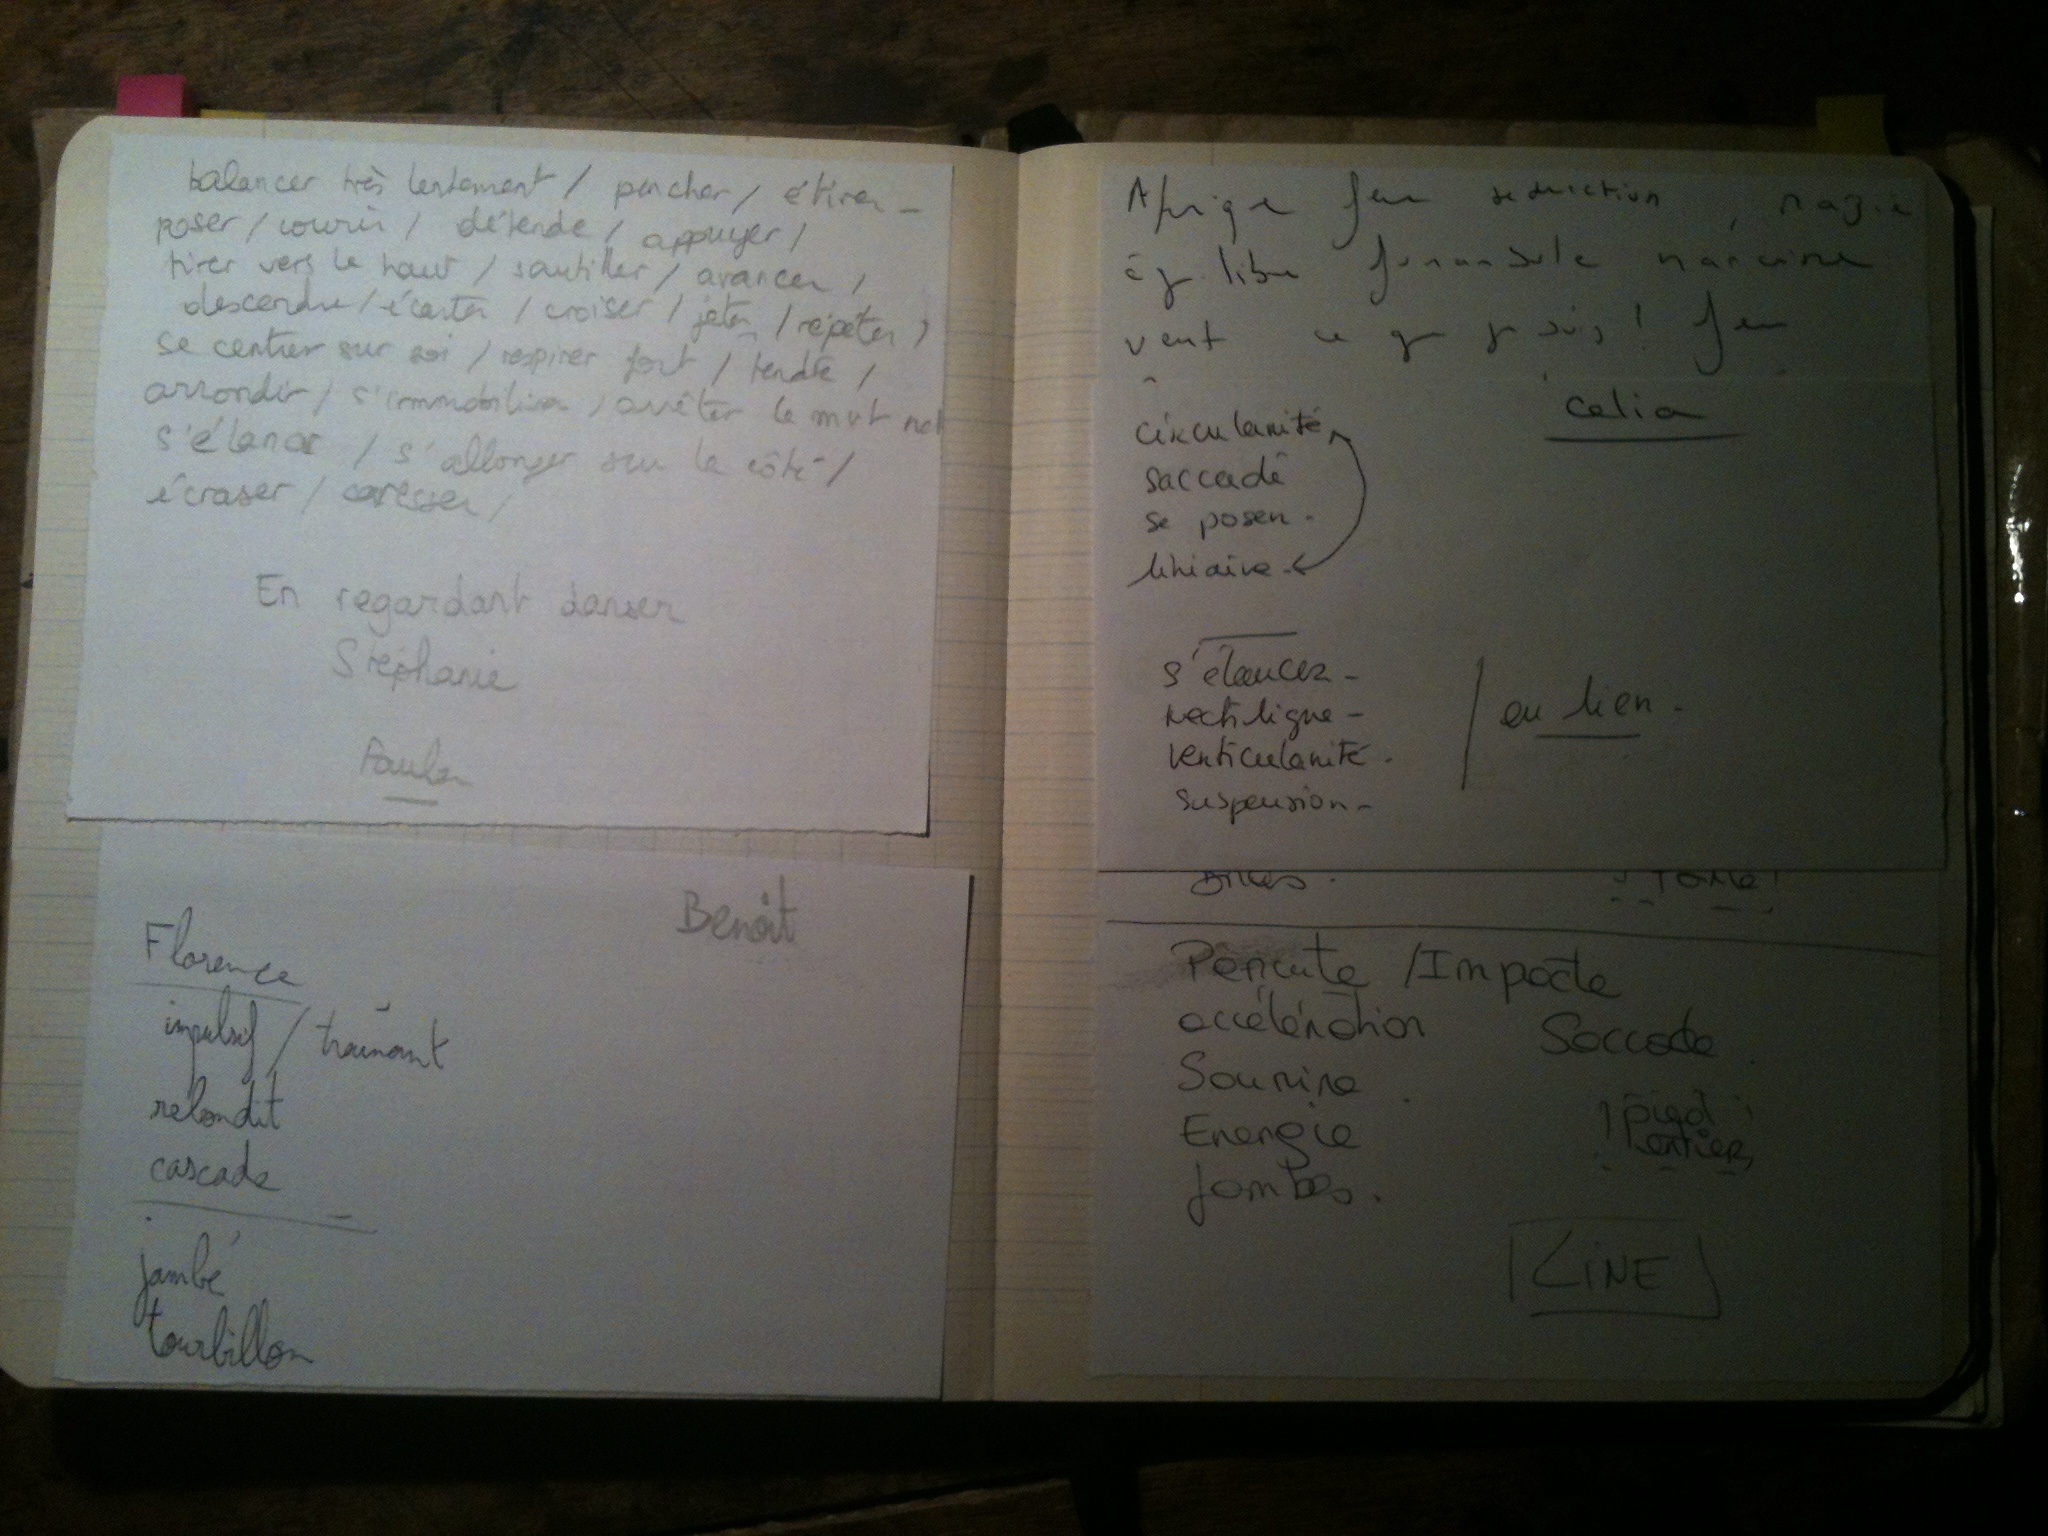 balancer très lentement / pencher / étirer -
poser / courir / détendre / appuyer /
tirer vers le haut / sautiller / avancer /
descendre / écarter / croiser / jeter / répéter /
se centrer sur soi / respirer fort / tendre /
arrondir / s'immobiliser / arrêter le mvt net
s'élancer / s'allonger sur le côté /
écraser / caresser /
En regardant danser
Stéphanie
Benoît
Florence
impulsif / trainant
rebondit
cascade
jambé
tourbillon
Afrique feu séduction, magie
équilibre funambule narcisse
vent ce que je suis! feu
celia
circularité
saccadé
se poser -
linéaire -
s'élancer -
rectiligne -
verticularité -
suspension -
en lien -
Péricute / Impacte
accélération Saccade
Sourire
Energie
! pied !
entier
jambes.
LINE